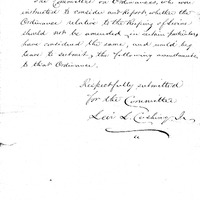 The Committee on Ordinances, who were
instructed to consider and report whether the
Ordinance relative to the Keeping of Swine
should not be amended in certain particulars
have considered the same, and would beg
leave to submit the following amendments
to that Ordinance.
Respectfully submitted
for the Committee
L. Cushing Jr.